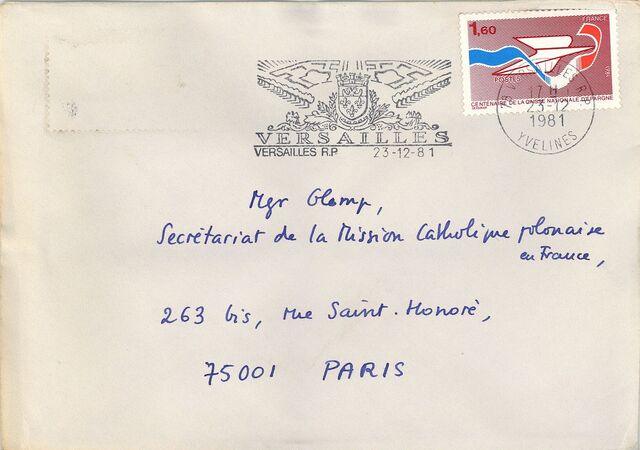 1,60
FRANCE
POSTES
1981
CENTENAIRE DE LA CAISSE NATIONALE D'EPARGNE
VERSAILLES R.P
17 H
23-12
1981
YVELINES
VERSAILLES
VERSAILLES R.P. 23-12-81
Mgr Glemp,
Secrétariat de la Mission Catholique polonaise
en France,
263 bis, rue Saint-Honoré,
75001 PARIS